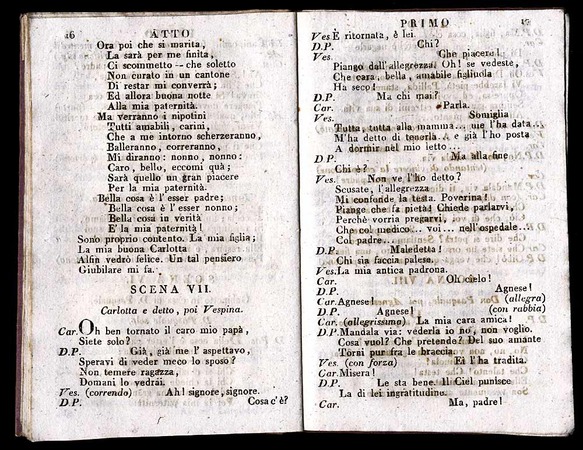 16 ATTO
Ora poi che si marita,
La sarà per me finita,
Ci scommetto -- che soletto
Non curato in un cantone
Di restar mi converrà;
Ed allora buona notte
Alla mia paternità.
Ma verranno i nipotini
Tutti amabili, carini,
Che a me intorno scherzeranno,
Balleranno, correranno,
Mi diranno: nonno, nonno:
Caro, bello, eccomi quà;
Sarà quello un gran piacere
Per la mia paternità.
Bella cosa è l'esser padre;
Bella cosa è l'esser nonno;
Bella cosa in verità
E' la mia paternità!
Sono proprio contento. La mia figlia;
La mia buona Carlotta
Alfin vedrò felice. Un tal pensiero
Giubilare mi fa.
SCENA VII.
Carlotta e detto, poi Vespina.
Car. Oh ben tornato il caro mio papà,
Siete solo?
D.P. Già, già me l'aspettavo,
Speravi di veder meco lo sposo?
Non temere ragazza,
Domani lo vedrai.
Ves. (correndo) Ah! signore, signore.
D.P. Cosa c'è?
PRIMO 17
Ves. È ritornata, è lei.
D.P. Chi?
Ves. Che piacere!
Piango dall'allegrezza. Oh! se vedeste,
Che cara, bella, amabile figliuola
Ha seco!
D.P. Ma chi mai?
Car. Parla.
Ves. Somiglia
Tutta, tutta alla mamma... me l'ha data...
M'ha detto di tenerla... e già l'ho posta
A dormir nel mio letto...
D.P. Ma alla fine
Chi è?
Ves. Non ve l'ho detto?
Scusate, l'allegrezza
Mi confonde la testa. Poverina!
Piange che fa pietà! Chiede parlarvi,
Perchè vorria pregarvi,
Che col medico... voi... nell'ospedale...
Col padre...
D.P. Maledetta!
Chi sia faccia palese.
Ves. La mia antica padrona.
Car. Oh cielo!
D.P. Agnese!
Car. Agnese! (allegra)
D.P. Agnese! (con rabbia)
Car. (allegrissima) La mia cara amica!
D.P. Mandala via: vederla io no, non voglio.
Cosa vuol? Che pretende? Del suo amante
Torni pur fra le braccia.
Ves. (con forza) Ei l'ha tradita.
Car. Misera!
D.P. Le sta bene. Il Ciel punisce
La di lei ingratitudine.
Car. Ma, padre!